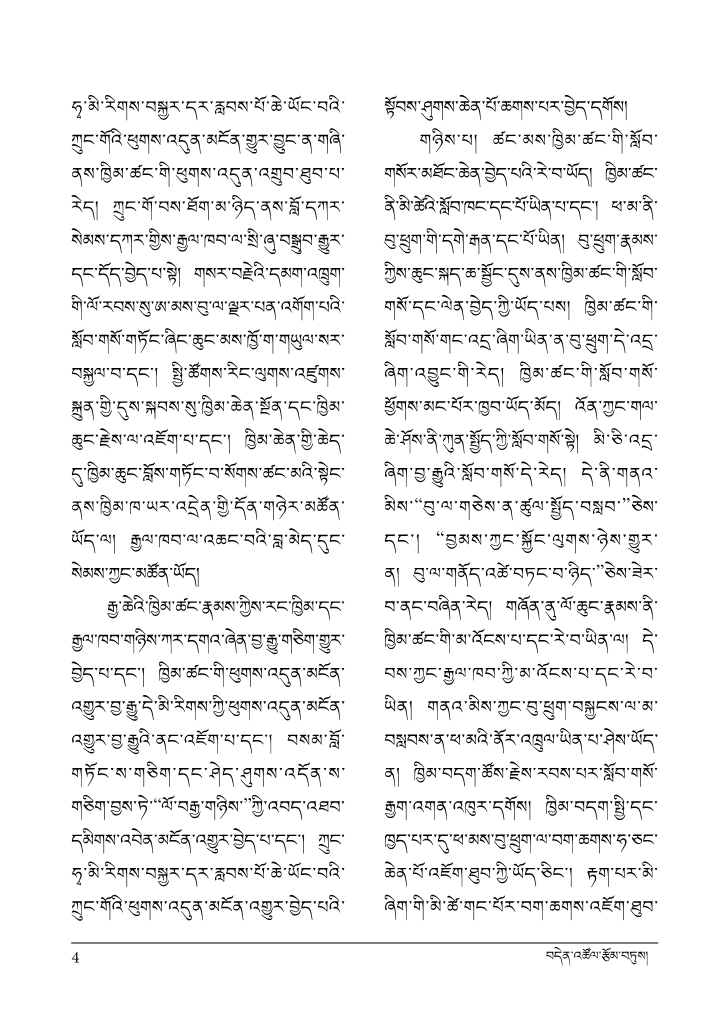 ཧྭ་མི་རིགས་བསྐྱར་དར་རླབས་པོ་ཆེ་ཡོང་བའི་
ཀྲུང་གོའི་ཕུགས་འདུན་མངོན་གྱུར་བྱུང་ན་གཞི་
ནས་ཁྱིམ་ཚང་གི་ཕུགས་འདུན་འགྲུབ་ཐུབ་པ་
རེད། ཀྲུང་གོ་བས་ཐོག་མ་ཉིད་ནས་བློ་དཀར་
སེམས་དཀར་གྱིས་རྒྱལ་ཁབ་ལ་སྲི་ཞུ་བསྒྲུབ་རྒྱུར་
དང་དོད་བྱེད་པ་སྟེ། གསར་བརྗེའི་དམག་འཁྲུག་
གི་ལོ་རབས་སུ་ཨ་མས་བུ་ལ་ལྕར་པན་འགོག་པའི་
སློབ་གསོ་གཏོང་ཞིང་ཆུང་མས་ཁྱོ་ག་གཡུལ་སར་
བསྐྱལ་བ་དང་། སྤྱི་ཚོགས་རིང་ལུགས་འཛུགས་
སྐྲུན་གྱི་དུས་སྐབས་སུ་ཁྱིམ་ཆེན་སྔོན་དང་ཁྱིམ་
ཆུང་རྗེས་ལ་འཇོག་པ་དང་། ཁྱིམ་ཆེན་གྱི་ཆེད་
དུ་ཁྱིམ་ཆུང་བློས་གཏོང་བ་སོགས་ཚང་མའི་སྟེང་
ནས་ཁྱིམ་ཁ་ཡར་འདྲེན་གྱི་དོན་གཉེར་མཚོན་
ཡོད་ལ། རྒྱལ་ཁབ་ལ་འཆང་བའི་བླ་མེད་དུང་
སེམས་ཀྱང་མཚོན་ཡོད།
རྒྱ་ཆེའི་ཁྱིམ་ཚང་རྣམས་ཀྱིས་རང་ཁྱིམ་དང་
རྒྱལ་ཁབ་གཉིས་ཀར་དགའ་ཞེན་བྱ་རྒྱུ་གཅིག་གྱུར་
བྱེད་པ་དང་། ཁྱིམ་ཚང་གི་ཕུགས་འདུན་མངོན་
འགྱུར་བྱ་རྒྱུ་དེ་མི་རིགས་ཀྱི་ཕུགས་འདུན་མངོན་
འགྱུར་བྱ་རྒྱུའི་ནང་འཇོག་པ་དང་། བསམ་བློ་
གཏོང་ས་གཅིག་དང་ཤེད་ཤུགས་འདོན་ས་
གཅིག་བྱས་ཏེ་“ལོ་བརྒྱ་གཉིས་”ཀྱི་འབད་འཐབ་
དམིགས་འབེན་མངོན་འགྱུར་བྱེད་པ་དང་། ཀྲུང་
ཧྭ་མི་རིགས་བསྐྱར་དར་རླབས་པོ་ཆེ་ཡོང་བའི་
ཀྲུང་གོའི་ཕུགས་འདུན་མངོན་འགྱུར་བྱེད་པའི་
སྟོབས་ཤུགས་ཆེན་པོ་ཆགས་པར་བྱེད་དགོས།
གཉིས་པ། ཚང་མས་ཁྱིམ་ཚང་གི་སློབ་
གསོར་མཐོང་ཆེན་བྱེད་པའི་རེ་བ་ཡོད། ཁྱིམ་ཚང་
ནི་མི་ཚེའི་སློབ་ཁང་དང་པོ་ཡིན་པ་དང་། ཕ་མ་ནི་
བུ་ཕྲུག་གི་དགེ་རྒན་དང་པོ་ཡིན། བུ་ཕྲུག་རྣམས་
ཀྱིས་ཆུང་སྐད་ཆ་སྦྱོང་དུས་ནས་ཁྱིམ་ཚང་གི་སློབ་
གསོ་དང་ལེན་བྱེད་ཀྱི་ཡོད་པས། ཁྱིམ་ཚང་གི་
སློབ་གསོ་གང་འདྲ་ཞིག་ཡིན་ན་བུ་ཕྲུག་དེ་འདྲ་
ཞིག་འབྱུང་གི་རེད། ཁྱིམ་ཚང་གི་སློབ་གསོ་
ཕྱོགས་མང་པོར་ཁྱབ་ཡོད་མོད། འོན་ཀྱང་གལ་
ཆེ་ཤོས་ནི་ཀུན་སྤྱོད་ཀྱི་སློབ་གསོ་སྟེ། མི་ཅི་འདྲ་
ཞིག་བྱ་རྒྱུའི་སློབ་གསོ་དེ་རེད། དེ་ནི་གནའ་
མིས་“བུ་ལ་གཅེས་ན་ཚུལ་སྤྱོད་བསླབ་”ཅེས་
དང་། “བྱམས་ཀྱང་སྐྱོང་ལུགས་ཉེས་གྱུར་
ན། བུ་ལ་གནོད་འཚེ་བཏང་བ་ཉིད་”ཅེས་ཟེར་
བ་ནང་བཞིན་རེད། གཞོན་ནུ་ལོ་ཆུང་རྣམས་ནི་
ཁྱིམ་ཚང་གི་མ་འོངས་པ་དང་རེ་བ་ཡིན་ལ། དེ་
བས་ཀྱང་རྒྱལ་ཁབ་ཀྱི་མ་འོངས་པ་དང་རེ་བ་
ཡིན། གནའ་མིས་ཀྱང་བུ་ཕྲུག་བསྐྱངས་ལ་མ་
བསླབས་ན་ཕ་མའི་ནོར་འཁྲུལ་ཡིན་པ་ཤེས་ཡོད་
ན། ཁྱིམ་བདག་ཚོས་རྗེས་རབས་པར་སློབ་གསོ་
རྒྱག་འགན་འཁུར་དགོས། ཁྱིམ་བདག་སྤྱི་དང་
ཁྱད་པར་དུ་ཕ་མས་བུ་ཕྲུག་ལ་བག་ཆགས་ཧ་ཅང་
ཆེན་པོ་འཇོག་ཐུབ་ཀྱི་ཡོད་ཅིང་། རྟག་པར་མི་
ཞིག་གི་མི་ཚེ་གང་པོར་བག་ཆགས་འཇོག་ཐུབ་
4 བདེན་འཚོལ་རྩོམ་བཏུས།